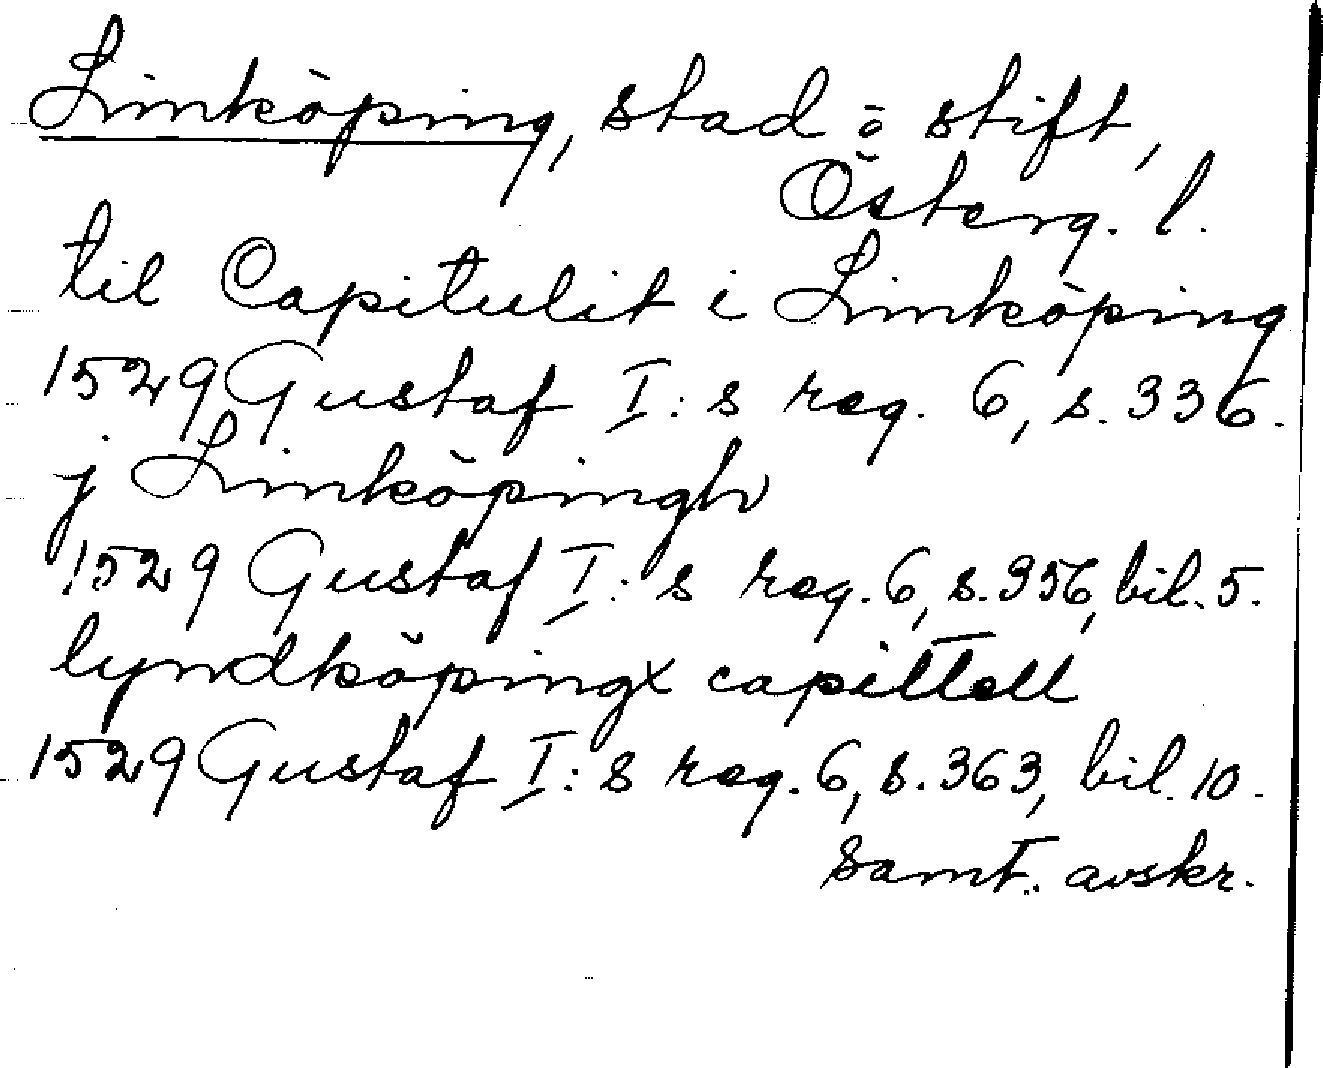 Linköping, stad o stift,
Österg. l.
til Capitulit i Linköping
1529 Gustaf I:s reg. 6, s. 336.
j Linköpingh
1529 Gustaf I:s reg. 6, s. 356, bil. 5.
lyndköpingx capittell
1529 Gustaf I:s reg. 6, s. 363, bil. 10.
Samt. avskr.